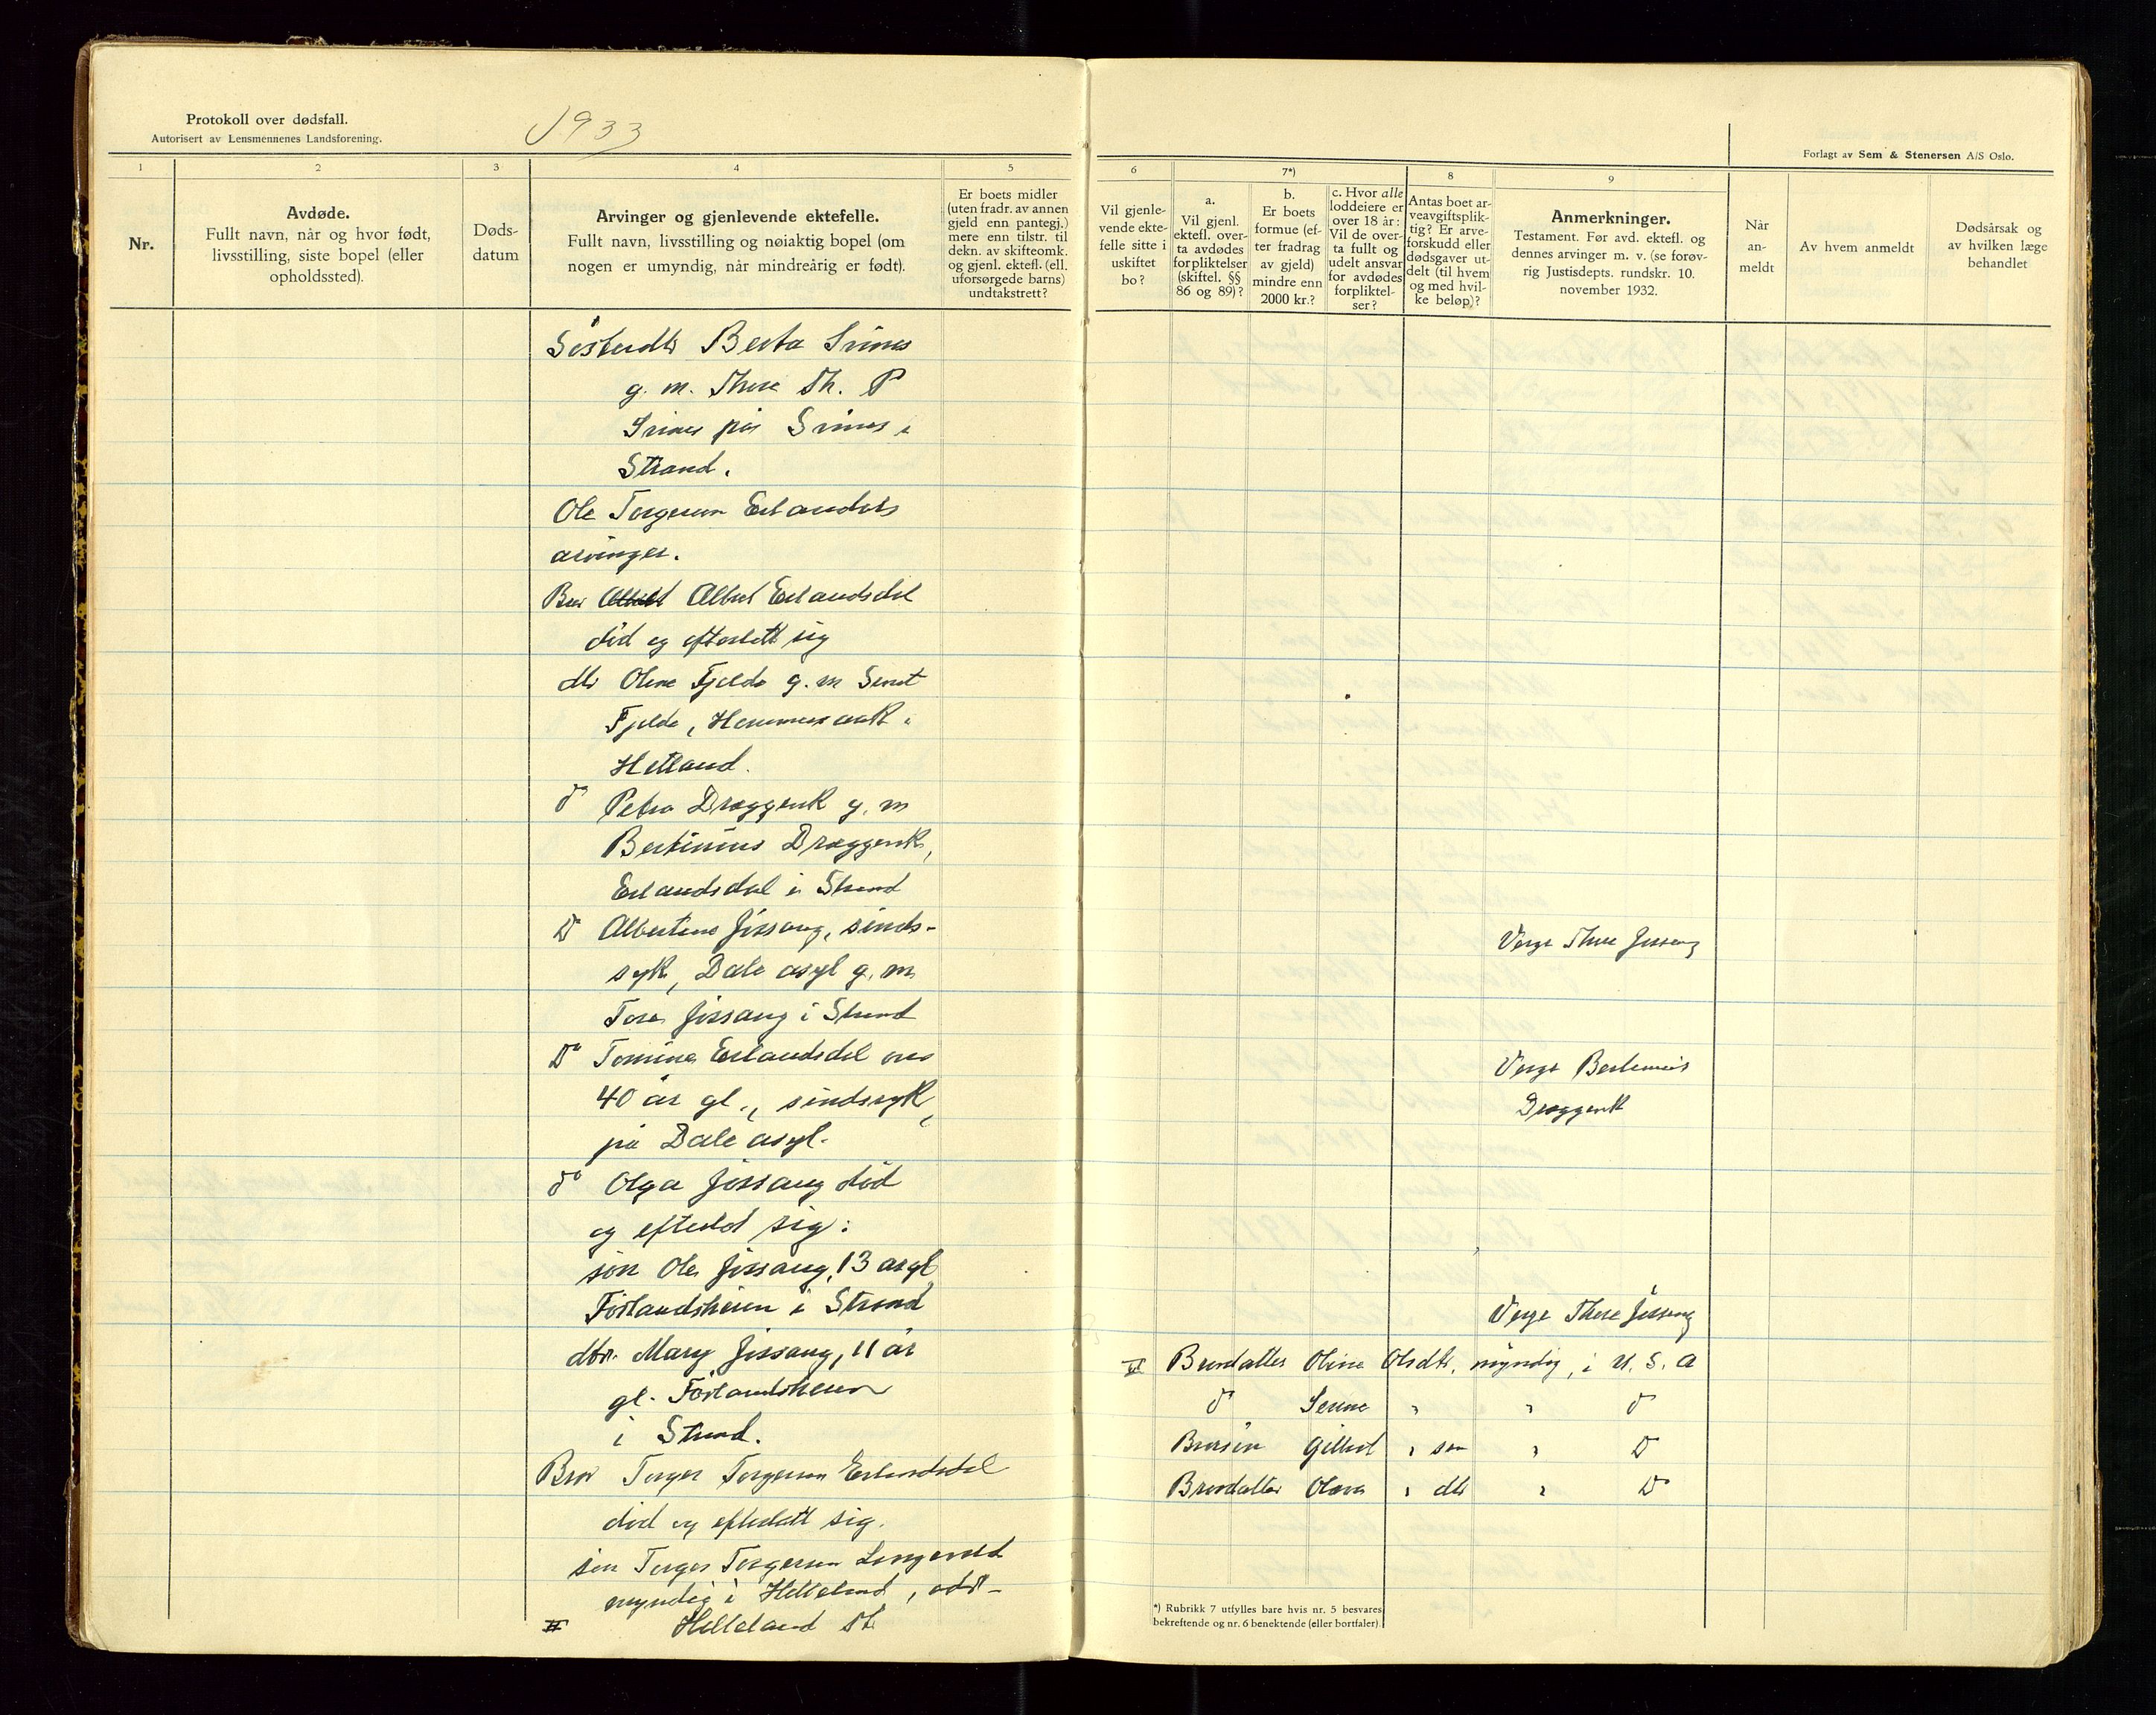 Protokoll over dødsfall.
Autorisert av Lensmennenes Landsforening.
1933
1
2
3
4
5
Nr.
Avdøde.
Fullt navn, når og hvor født,
livsstilling, siste bopel (eller
opholdssted).
Døds-
datum
Arvinger og gjenlevende ektefelle.
Fullt navn, livsstilling og nøiaktig bopel (om
nogen er umyndig, når mindreårig er født).
Er boets midler
(uten fradr. av annen
gjeld enn pantegj.)
mere enn tilstr. til
dekn. av skifteomk.
og gjenl. ektefl. (ell.
uforsørgede barns)
undtakstrett?
Berta
g. m. Th. P
på
Strand.
Ole Torgersen Erlands
arvinger.
Bror Albert Erlandsdal
død og efterlatt sig
dtr Oline Fjelde g. m
Fjelde, i
Hetland.
do Petra Dræggevik g. m
Bertinius Dræggevik,
Erlandsdal i Strand
Do Jøssang, sinds-
syk, Dale asyl g. m
Tore Jøssang i Strand
Do Tomine Erlandsdal over
40 år gl., sindssyk,
på Dale asyl.
do Olga Jøssang død
og efterlot sig:
søn Ole Jøssang, 13 år gl
Førlandsheien i Strand
dtr. Mary Jøssang, 11 år
gl. Førlandsheien
i Strand.
Bror Torger Torgersen Erlandsdal
død og efterlatt sig.
søn Torger Torgersen
myndig i Helleland, adr-
Helleland st
Forlagt av Sem & Stenersen A/S Oslo.
6
7*)
8
9
Vil gjenle-
vende ekte-
felle sitte i
uskiftet
bo?
a.
Vil gjenl.
ektefl. over-
ta avdødes
forpliktelser
(skiftel. §§
86 og 89)?
b.
Er boets
formue (ef-
ter fradrag
av gjeld)
mindre enn
2000 kr.?
c. Hvor alle
loddeiere er
over 18 år:
Vil de over-
ta fullt og
udelt ansvar
for avdødes
forpliktel-
ser?
Antas boet ar-
veavgiftsplik-
tig? Er arve-
forskudd eller
dødsgaver ut-
delt (til hvem
og med hvil-
ke beløp)?
Anmerkninger.
Testament. Før avd. ektefl. og
dennes arvinger m. v. (se forøv-
rig Justisdepts. rundskr. 10.
november 1932.
Når
an-
meldt
Av hvem anmeldt
Dødsårsak og
av hvilken læge
behandlet
Verge Jøssang
Verge Bertinius
Dræggevik
Verge Jøssang
Brordatter Oline Olsdtr. myndig, i U. S. A
do Serine " " do
Brorsøn Gilbert " søn " Do
Brordatter Olava " dtr " Do
*) Rubrikk 7 utfylles bare hvis nr. 5 besvares
bekreftende og nr. 6 benektende (eller bortfaler).